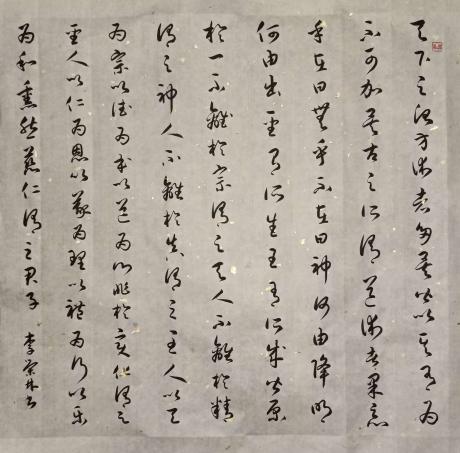 天下之治方術者多矣皆以其有為
不可加矣古之所謂道術者果惡
乎在曰無乎不在曰神何由降明
何由出聖有所生王有所成皆原
於一不離於宗謂之天人不離於精
謂之神人不離於真謂之至人以天
為宗以德為本以道為門兆於變化謂之
聖人以仁為恩以義為理以禮為行以樂
為和熏然慈仁謂之君子 李